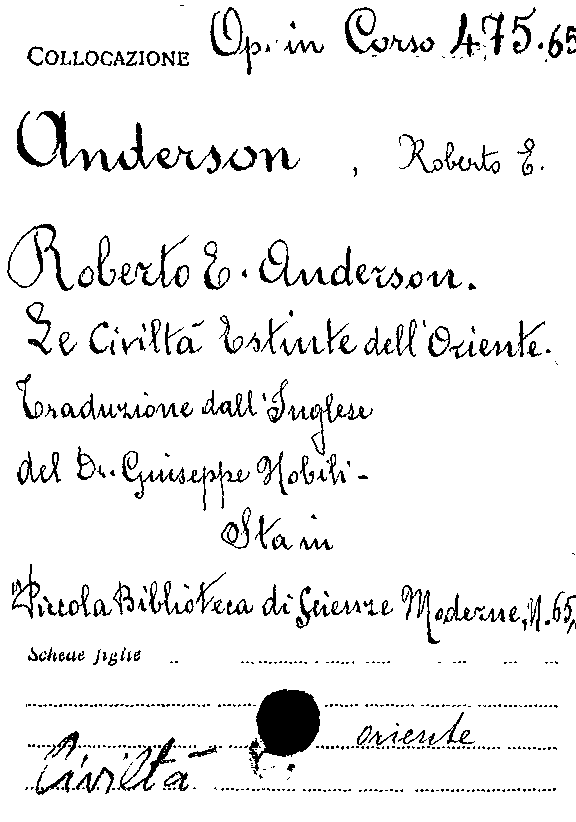 COLLOCAZIONE Op. in Corso 475.65
Anderson, Roberto E.
Roberto E. Anderson.
Le Civiltà Estinte dell'Oriente.
Traduzione dall'Inglese
del Dr. Giuseppe Nobili-
Sta in
Piccola Biblioteca di Scienze Moderne, N. 65,
Schede figlie
oriente
Civiltà